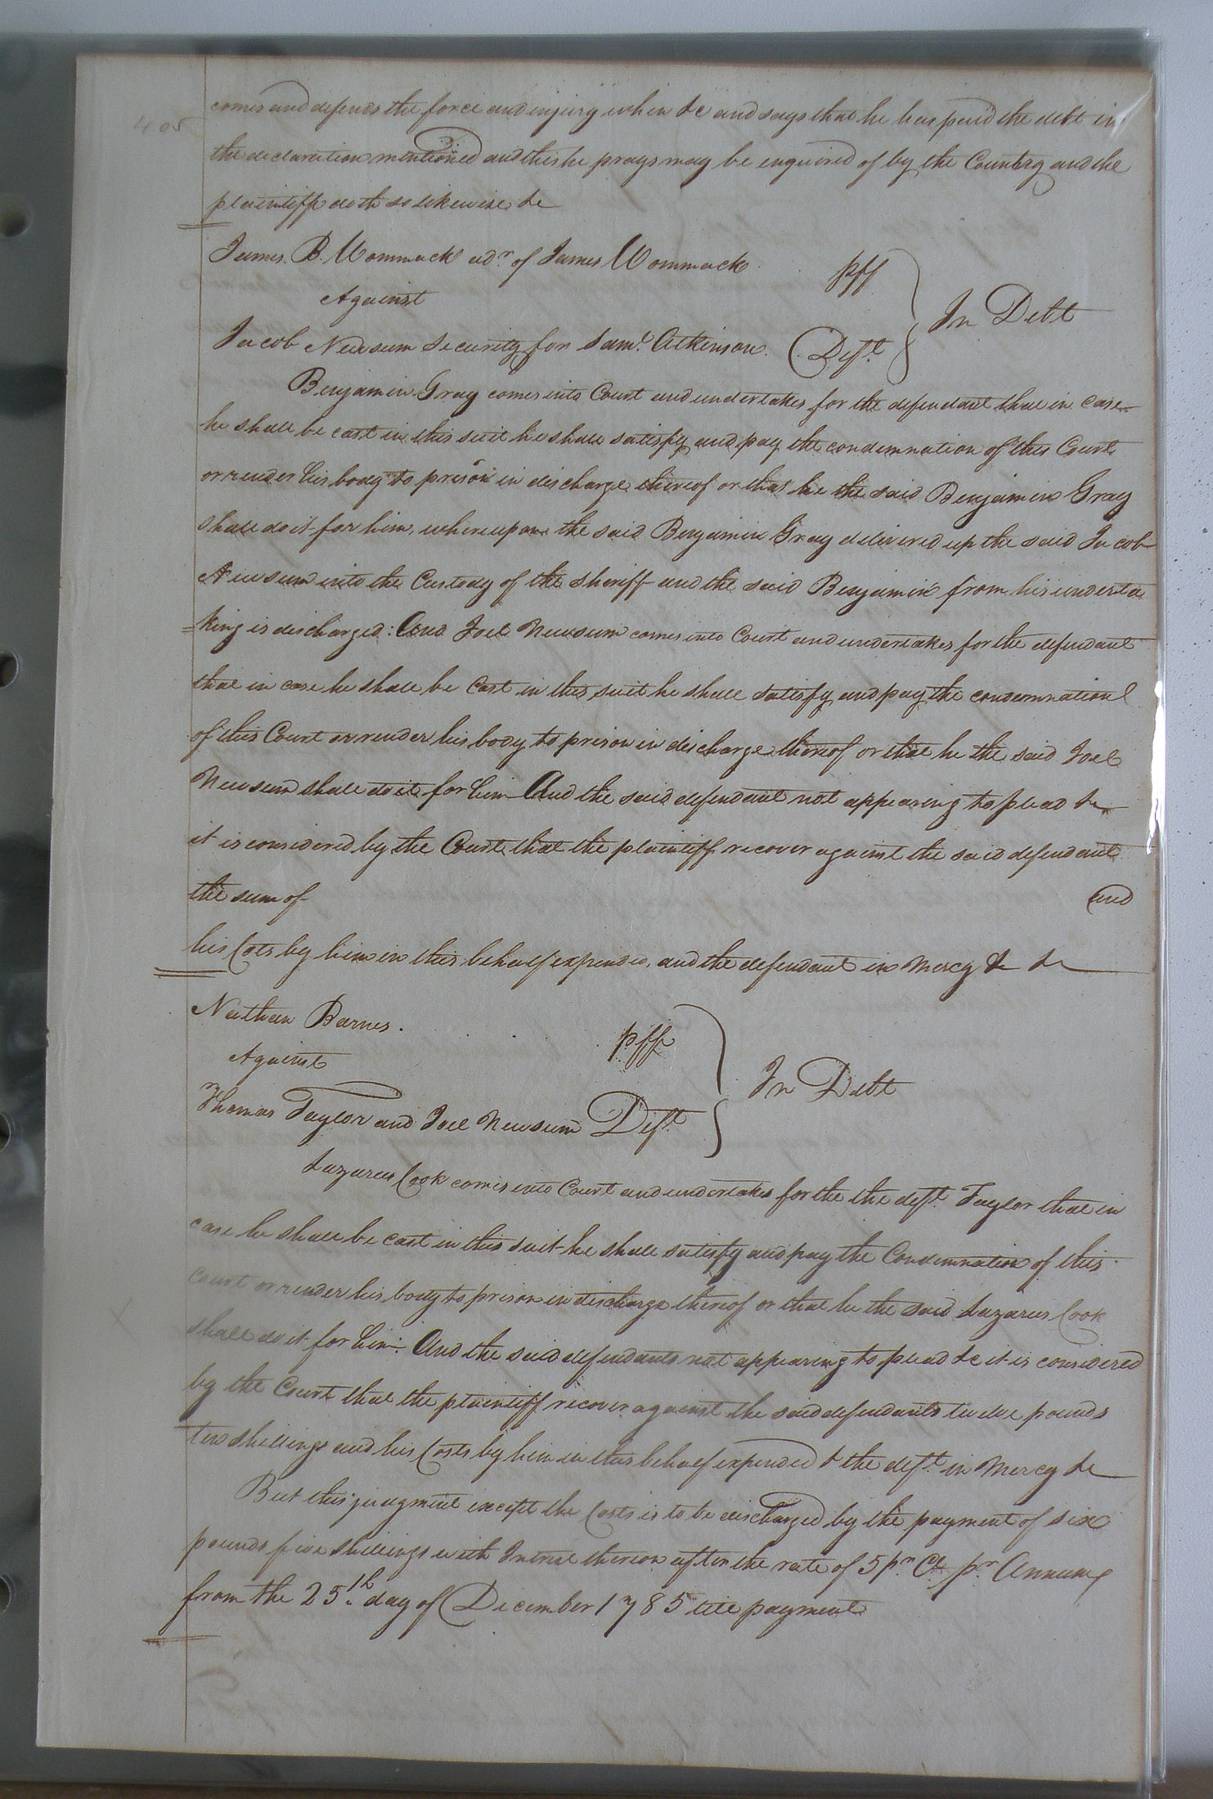 405
comes and defends the force and injury when &c and says that he has paid the debt in
the declaration mentioned and this he prays may be enquired of by the Country and the
plaintiff doth so likewise &c
James B. Wommack adr. of James Wommack pff
Against
In Debt
Jacob Newsum Security for Saml. Atkinson. Deft.
Benjamin Gray comes into Court and undertakes for the defendant that in case
he shall be cast in this suit he shall satisfy and pay the condemnation of this Court
or render his body to prison in discharge thereof or that he the said Benjamin Gray
shall do it for him, whereupon the said Benjamin Gray delivered up the said Jacob
Newsum into the Custody of the Sheriff and the said Benjamin from his underta
king is discharged: And Joel Newsum comes into Court and undertakes for the defendant
that in case he shall be Cast in this suit he shall satisfy and pay the condemnation
of this Court or render his body to prison in discharge thereof or that he the said Joel
Newsum shall do it for him And the said defendant not appearing to plead &c
it is considered by the Court that the plaintiff recover against the said defendant
the sum of and
his Costs by him in this behalf expended, and the defendant in Mercy & &c
Nathan Barnes. pff
Against
In Debt
Thomas Taylor and Joel Newsum Deft.
Lazarus Cook comes into Court and undertakes for the the deft. Taylor that in
case he shall be cast in this suit he shall satisfy and pay the Condemnation of this
Court or render his body to prison in discharge thereof or that he the said Lazarus Cook
shall do it for him: And the said defendants not appearing to plead &c it is considered
by the Court that the plaintiff recover against the said defendants twelve pounds
ten shillings and his Costs by him in this behalf expended & the deft. in Mercy &c
But this judgment except the Costs is to be discharged by the payment of six
pounds five shillings with Interest thereon after the rate of 5 pr. Ct. pr. Annum
from the 25th day of December 1785 till payment